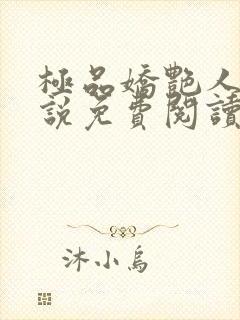 極品嬌艷人
說免費閱讀
沐小烏